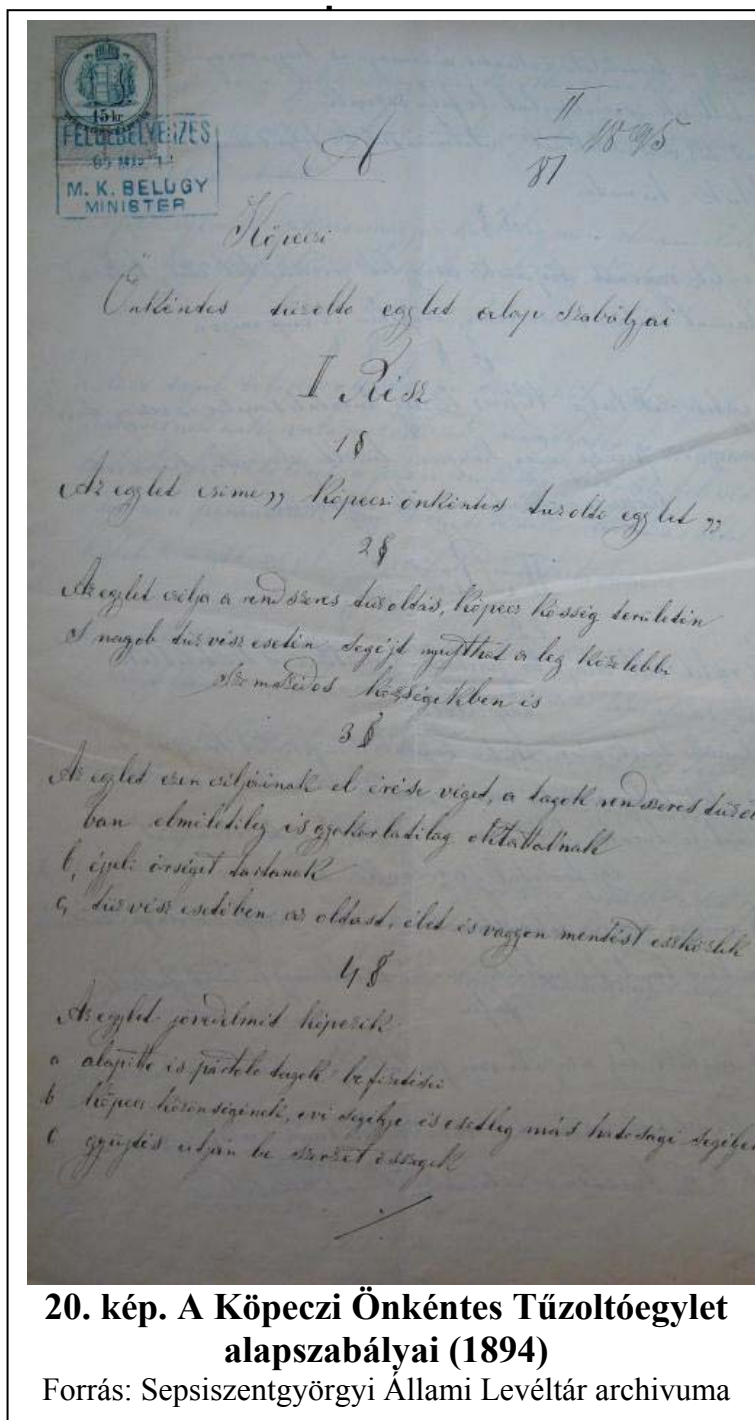 15 kr
FELÜLBÉLYEGZÉS
95
M. K. BELÜGY
MINISTER
II
81 1895
A
Köpeczi
Önkéntes tüzolto egylet alap szabályai
I Rész
1 §
Az egylet czime „ Köpeczi önkéntes tüzolto egylet „
2 §
Az egylet czélja a rendszeres tüzoltás, Köpecz község területén
S nagob tüzvész esetén segéjt nyujthat a leg közelebbi
szomszédos községekben is
3 §
Az egylet ezen czéljainak el érése véget, a tagok rendszeres
ban elméletileg is gyakorlatilag oktattatnak
b, éjjeli örséget tartanak
c, tüzvész esetében az oltast, élet és vaggon mentést eszközlik
4 §
Az egylet jovedelmit képezik
a alapitto is pártolo tagok befizetései
b Köpecz közönségének, evi segélye is esetleg más hatosági
c gyüjtés utján be szerzet összegek
20. kép. A Köpeczi Önkéntes Tűzoltóegylet
alapszabályai (1894)
Forrás: Sepsiszentgyörgyi Állami Levéltár archivuma